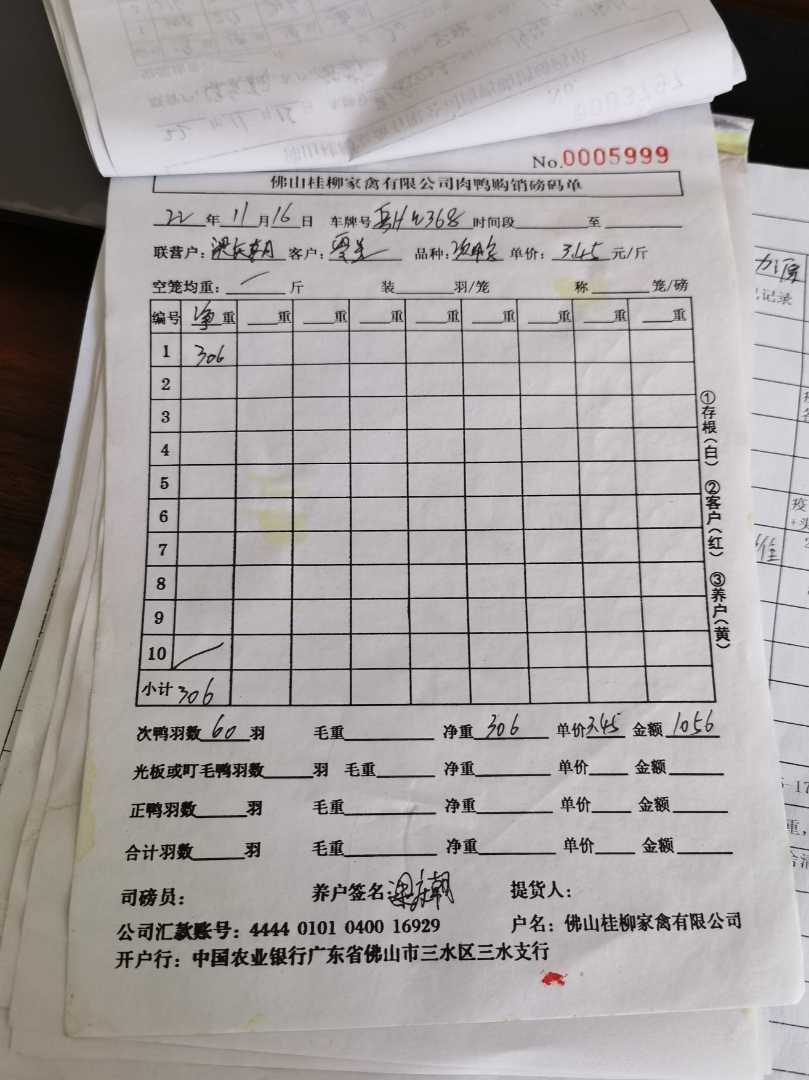 No.0005999
佛山桂柳家禽有限公司肉鸭购销磅码单
22年11月16日 车牌号 时间段 至
联营户：梁庆朝 客户： 品种： 单价：3.45元/斤
空笼均重： 斤 装 羽/笼 称 笼/磅
编号 净重 重 重 重 重 重 重 重 重
1 306
2
3
4
5
6
7
8
9
10
小计 306
①存根(白) ②客户(红) ③养户(黄)
次鸭羽数60羽 毛重 净重306 单价3.45 金额1056
光板或盯毛鸭羽数 羽 毛重 净重 单价 金额
正鸭羽数 羽 毛重 净重 单价 金额
合计羽数 羽 毛重 净重 单价 金额
司磅员： 养户签名：梁庆朝 提货人：
公司汇款账号：4444 0101 0400 16929 户名：佛山桂柳家禽有限公司
开户行：中国农业银行广东省佛山市三水区三水支行